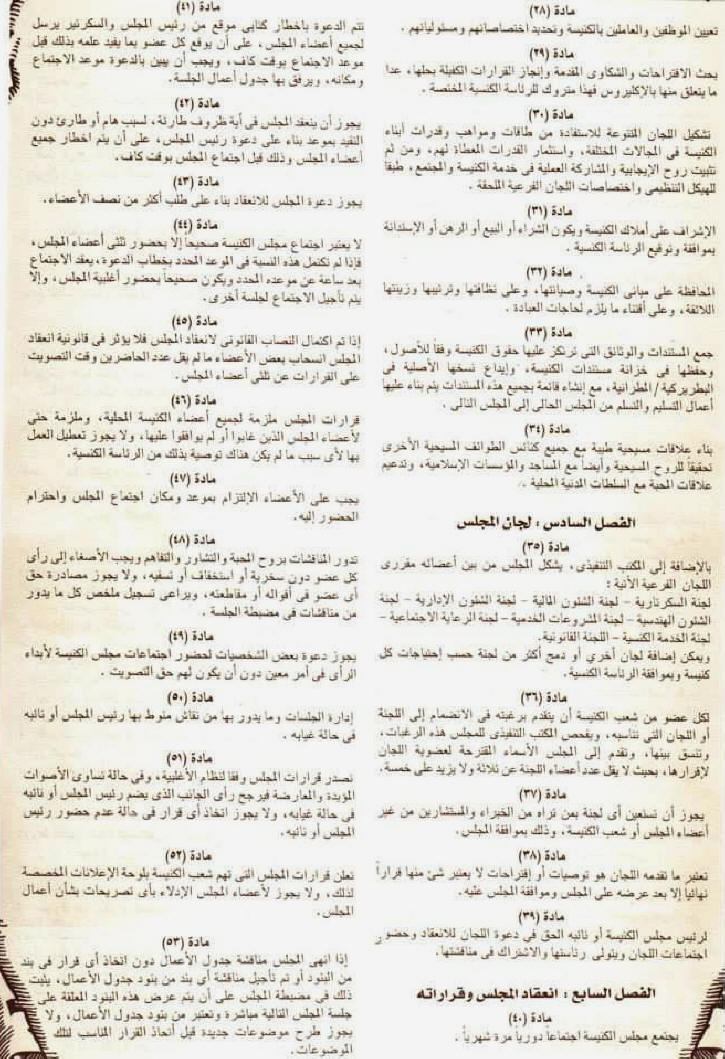 مادة (٢٨)
تعيين الموظفين والعاملين بالكنيسة وتحديد اختصاصاتهم ومسئولياتهم .
مادة (٢٩)
بحث الاقتراحات والشكاوى المقدمة وإنجاز القرارات الكفيلة بحلها، عدا
ما يتعلق منها بالإكليروس فهذا متروك للرئاسة الكنسية المختصة .
مادة (٣٠)
تشكيل اللجان المتنوعة للاستفادة من طاقات ومواهب وقدرات أبناء
الكنيسة فى المجالات المختلفة، واستثمار القدرات المعطاة لهم، ومن ثم
تثبيت روح الإيجابية والمشاركة العملية فى خدمة الكنيسة والمجتمع، طبقاً
للهيكل التنظيمى واختصاصات اللجان الفرعية الملحقة .
مادة (٣١)
الإشراف على أملاك الكنيسة ويكون الشراء أو البيع أو الرهن أو الإستدانة
بموافقة وتوقيع الرئاسة الكنسية .
مادة (٣٢)
المحافظة على مبانى الكنيسة وصيانتها، وعلى نظافتها وترتيبها وزينتها
اللائقة، وعلى أقتناء ما يلزم لحاجات العبادة .
مادة (٣٣)
جمع المستندات والوثائق التى ترتكز عليها حقوق الكنيسة وفقاً للأصول،
وحفظها فى خزانة مستندات الكنيسة، وإيداع نسخها الأصلية فى
البطريركية / المطرانية، مع إنشاء قائمة بجميع هذه المستندات يتم بناء عليها
أعمال التسليم والتسلم من المجلس الحالى إلى المجلس التالى .
مادة (٣٤)
بناء علاقات مسيحية طيبة مع جميع كنائس الطوائف المسيحية الأخرى
تحقيقاً للروح المسيحية وأيضاً مع المساجد والمؤسسات الإسلامية، وتدعيم
علاقات المحبة مع السلطات المدنية المحلية .
الفصل السادس : لجان المجلس
مادة (٣٥)
بالإضافة إلى المكتب التنفيذى، يشكل المجلس من بين أعضائه مقررى
اللجان الفرعية الآتية :
لجنة السكرتارية – لجنة الشئون المالية – لجنة الشئون الإدارية – لجنة
الشئون الهندسية – لجنة المشروعات الخدمية – لجنة الرعاية الاجتماعية –
لجنة الخدمة الكنسية – اللجنة القانونية.
ويمكن إضافة لجان أخري أو دمج أكثر من لجنة حسب إحتياجات كل
كنيسة وبموافقة الرئاسة الكنسية.
مادة (٣٦)
لكل عضو من شعب الكنيسة أن يتقدم برغبته فى الانضمام إلى اللجنة
أو اللجان التي تناسبه، ويفحص المكتب التنفيذى للمجلس هذه الرغبات،
وتنسق بينها، وتقدم إلى المجلس الأسماء المقترحة لعضوية اللجان
لإقرارها، بحيث لا يقل عدد أعضاء اللجنة عن ثلاثة ولا يزيد على خمسة.
مادة (٣٧)
يجوز أن تستعين أى لجنة بمن تراه من الخبراء والمستشارين من غير
أعضاء المجلس أو شعب الكنيسة، وذلك بموافقة المجلس.
مادة (٣٨)
تعتبر ما تقدمه اللجان هو توصيات أو إقتراحات لا يعتبر شئ منها قراراً
نهائياً إلا بعد عرضه على المجلس وموافقة المجلس عليه.
مادة (٣٩)
لرئيس مجلس الكنيسة أو نائبه الحق فى دعوة اللجان للانعقاد وحضور
اجتماعات اللجان ويتولى رئاستها والاشتراك فى مناقشتها.
الفصل السابع : انعقاد المجلس وقراراته
مادة (٤٠)
يجتمع مجلس الكنيسة اجتماعاً دورياً مرة شهرياً .
مادة (٤١)
تتم الدعوة بأخطار كتابى موقع من رئيس المجلس والسكرتير يرسل
لجميع أعضاء المجلس، على أن يوقع كل عضو بما يفيد علمه بذلك قبل
موعد الاجتماع بوقت كاف، ويجب أن يبين بالدعوة موعد الاجتماع
ومكانه، ويرفق بها جدول أعمال الجلسة.
مادة (٤٢)
يجوز أن ينعقد المجلس فى أية ظروف طارئة، لسبب هام أو طارئ دون
التقيد بموعد بناء على دعوة رئيس المجلس، على أن يتم اخطار جميع
أعضاء المجلس وذلك قبل اجتماع المجلس بوقت كاف.
مادة (٤٣)
يجوز دعوة المجلس للانعقاد بناء على طلب أكثر من نصف الأعضاء.
مادة (٤٤)
لا يعتبر اجتماع مجلس الكنيسة صحيحاً إلا بحضور ثلثى أعضاء المجلس،
فإذا لم تكتمل هذه النسبة فى الموعد المحدد بخطاب الدعوة، يعقد الاجتماع
بعد ساعة عن موعده المحدد ويكون صحيحاً بحضور أغلبية المجلس، وإلا
يتم تأجيل الاجتماع لجلسة أخرى.
مادة (٤٥)
إذا تم اكتمال النصاب القانونى لانعقاد المجلس فلا يؤثر فى قانونية انعقاد
المجلس انسحاب بعض الأعضاء ما لم يقل عدد الحاضرين وقت التصويت
على القرارات عن ثلثى أعضاء المجلس.
مادة (٤٦)
قرارات المجلس ملزمة لجميع أعضاء الكنيسة المحلية، وملزمة حتى
لأعضاء المجلس الذين غابوا أو لم يوافقوا عليها، ولا يجوز تعطيل العمل
بها لأى سبب ما لم يكن هناك توصية بذلك من الرئاسة الكنسية.
مادة (٤٧)
يجب على الأعضاء الإلتزام بموعد ومكان اجتماع المجلس واحترام
الحضور إليه.
مادة (٤٨)
تدور المناقشات بروح المحبة والتشاور والتفاهم ويجب الأصغاء إلى رأى
كل عضو دون سخرية أو استخفاف أو تسفيه، ولا يجوز مصادرة حق
أى عضو فى أقواله أو مقاطعته، ويراعى تسجيل ملخص كل ما يدور
من مناقشات فى مضبطة الجلسة .
مادة (٤٩)
يجوز دعوة بعض الشخصيات لحضور اجتماعات مجلس الكنيسة لأبداء
الرأى فى أمر معين دون أن يكون لهم حق التصويت .
مادة (٥٠)
إدارة الجلسات وما يدور بها من نقاش منوط بها رئيس المجلس أو نائبه
فى حالة غيابه .
مادة (٥١)
تصدر قرارات المجلس وفقا لنظام الأغلبية، وفى حالة تساوى الأصوات
المؤيدة والمعارضة فيرجح رأى الجانب الذى يضم رئيس المجلس أو نائبه
فى حالة غيابه، ولا يجوز اتخاذ أى قرار فى حالة عدم حضور رئيس
المجلس أو نائبه.
مادة (٥٢)
تعلن قرارات المجلس التى تهم شعب الكنيسة بلوحة الإعلانات المخصصة
لذلك، ولا يجوز لأعضاء المجلس الإدلاء بأى تصريحات بشأن أعمال
المجلس.
مادة (٥٣)
إذا انهى المجلس مناقشة جدول الأعمال دون اتخاذ أى قرار فى بند
من البنود أو تم تأجيل مناقشة أى بند من بنود جدول الأعمال، يثبت
ذلك فى مضبطة المجلس على أن يتم عرض هذه البنود المعلقة على
جلسة المجلس التالية مباشرة وتعتبر من بنود جدول الأعمال، ولا
يجوز طرح موضوعات جديدة قبل أتخاذ القرار المناسب لتلك
الموضوعات.